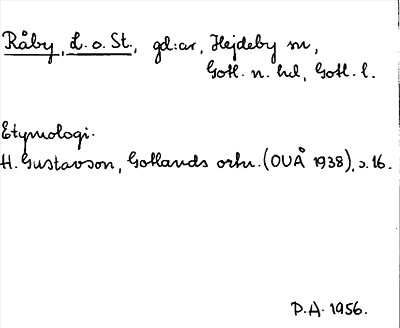 Råby, L. o. St., gd:ar, Hejdeby sn,
Gotl. n. hd, Gotl. l.
Etymologi.
H. Gustavson, Gotlands ortn. (OUÅ 1938), s. 16.
P.A. 1956.